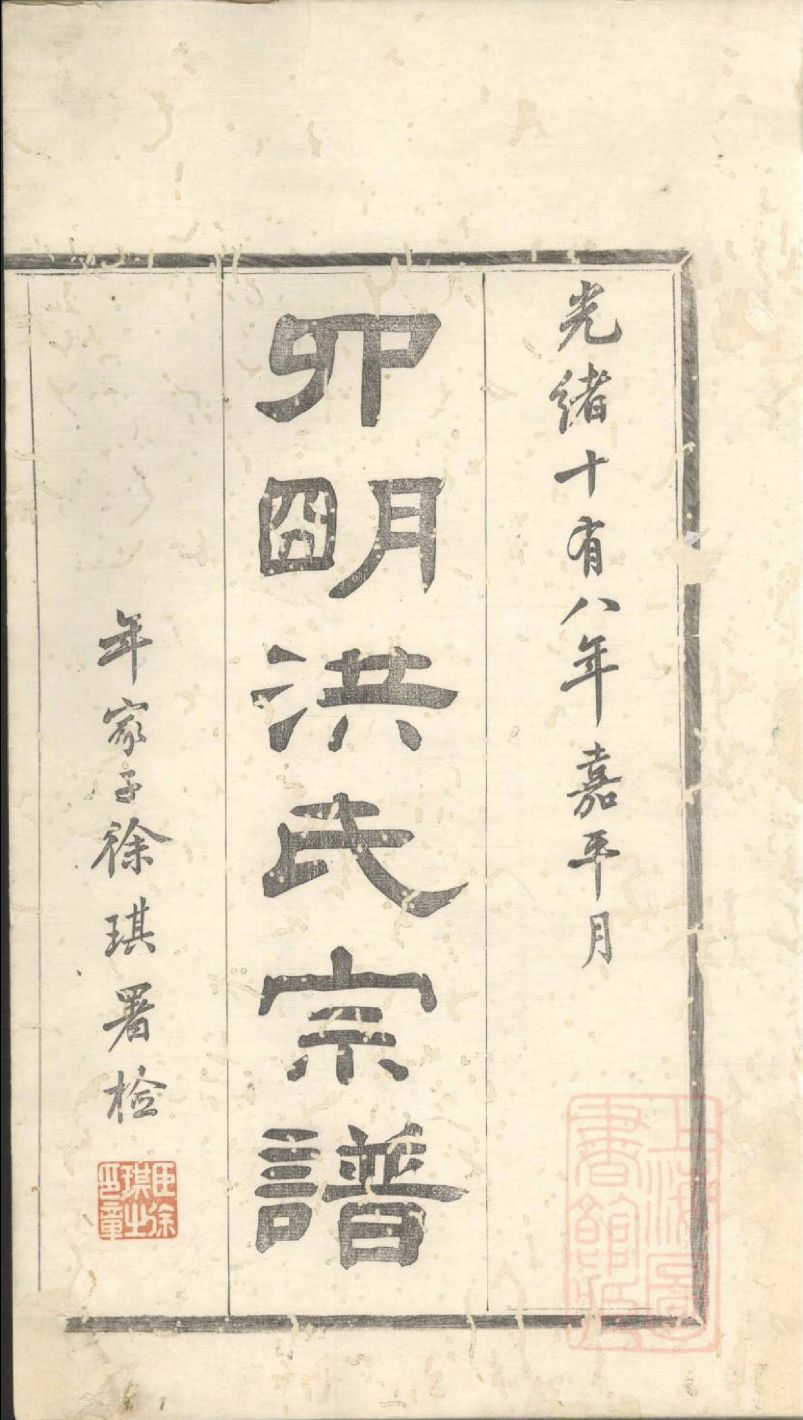 光緒十有八年嘉平月
四朙洪氏宗譜
年家子徐琪署檢
臣徐琪之印章
上海圖書館藏